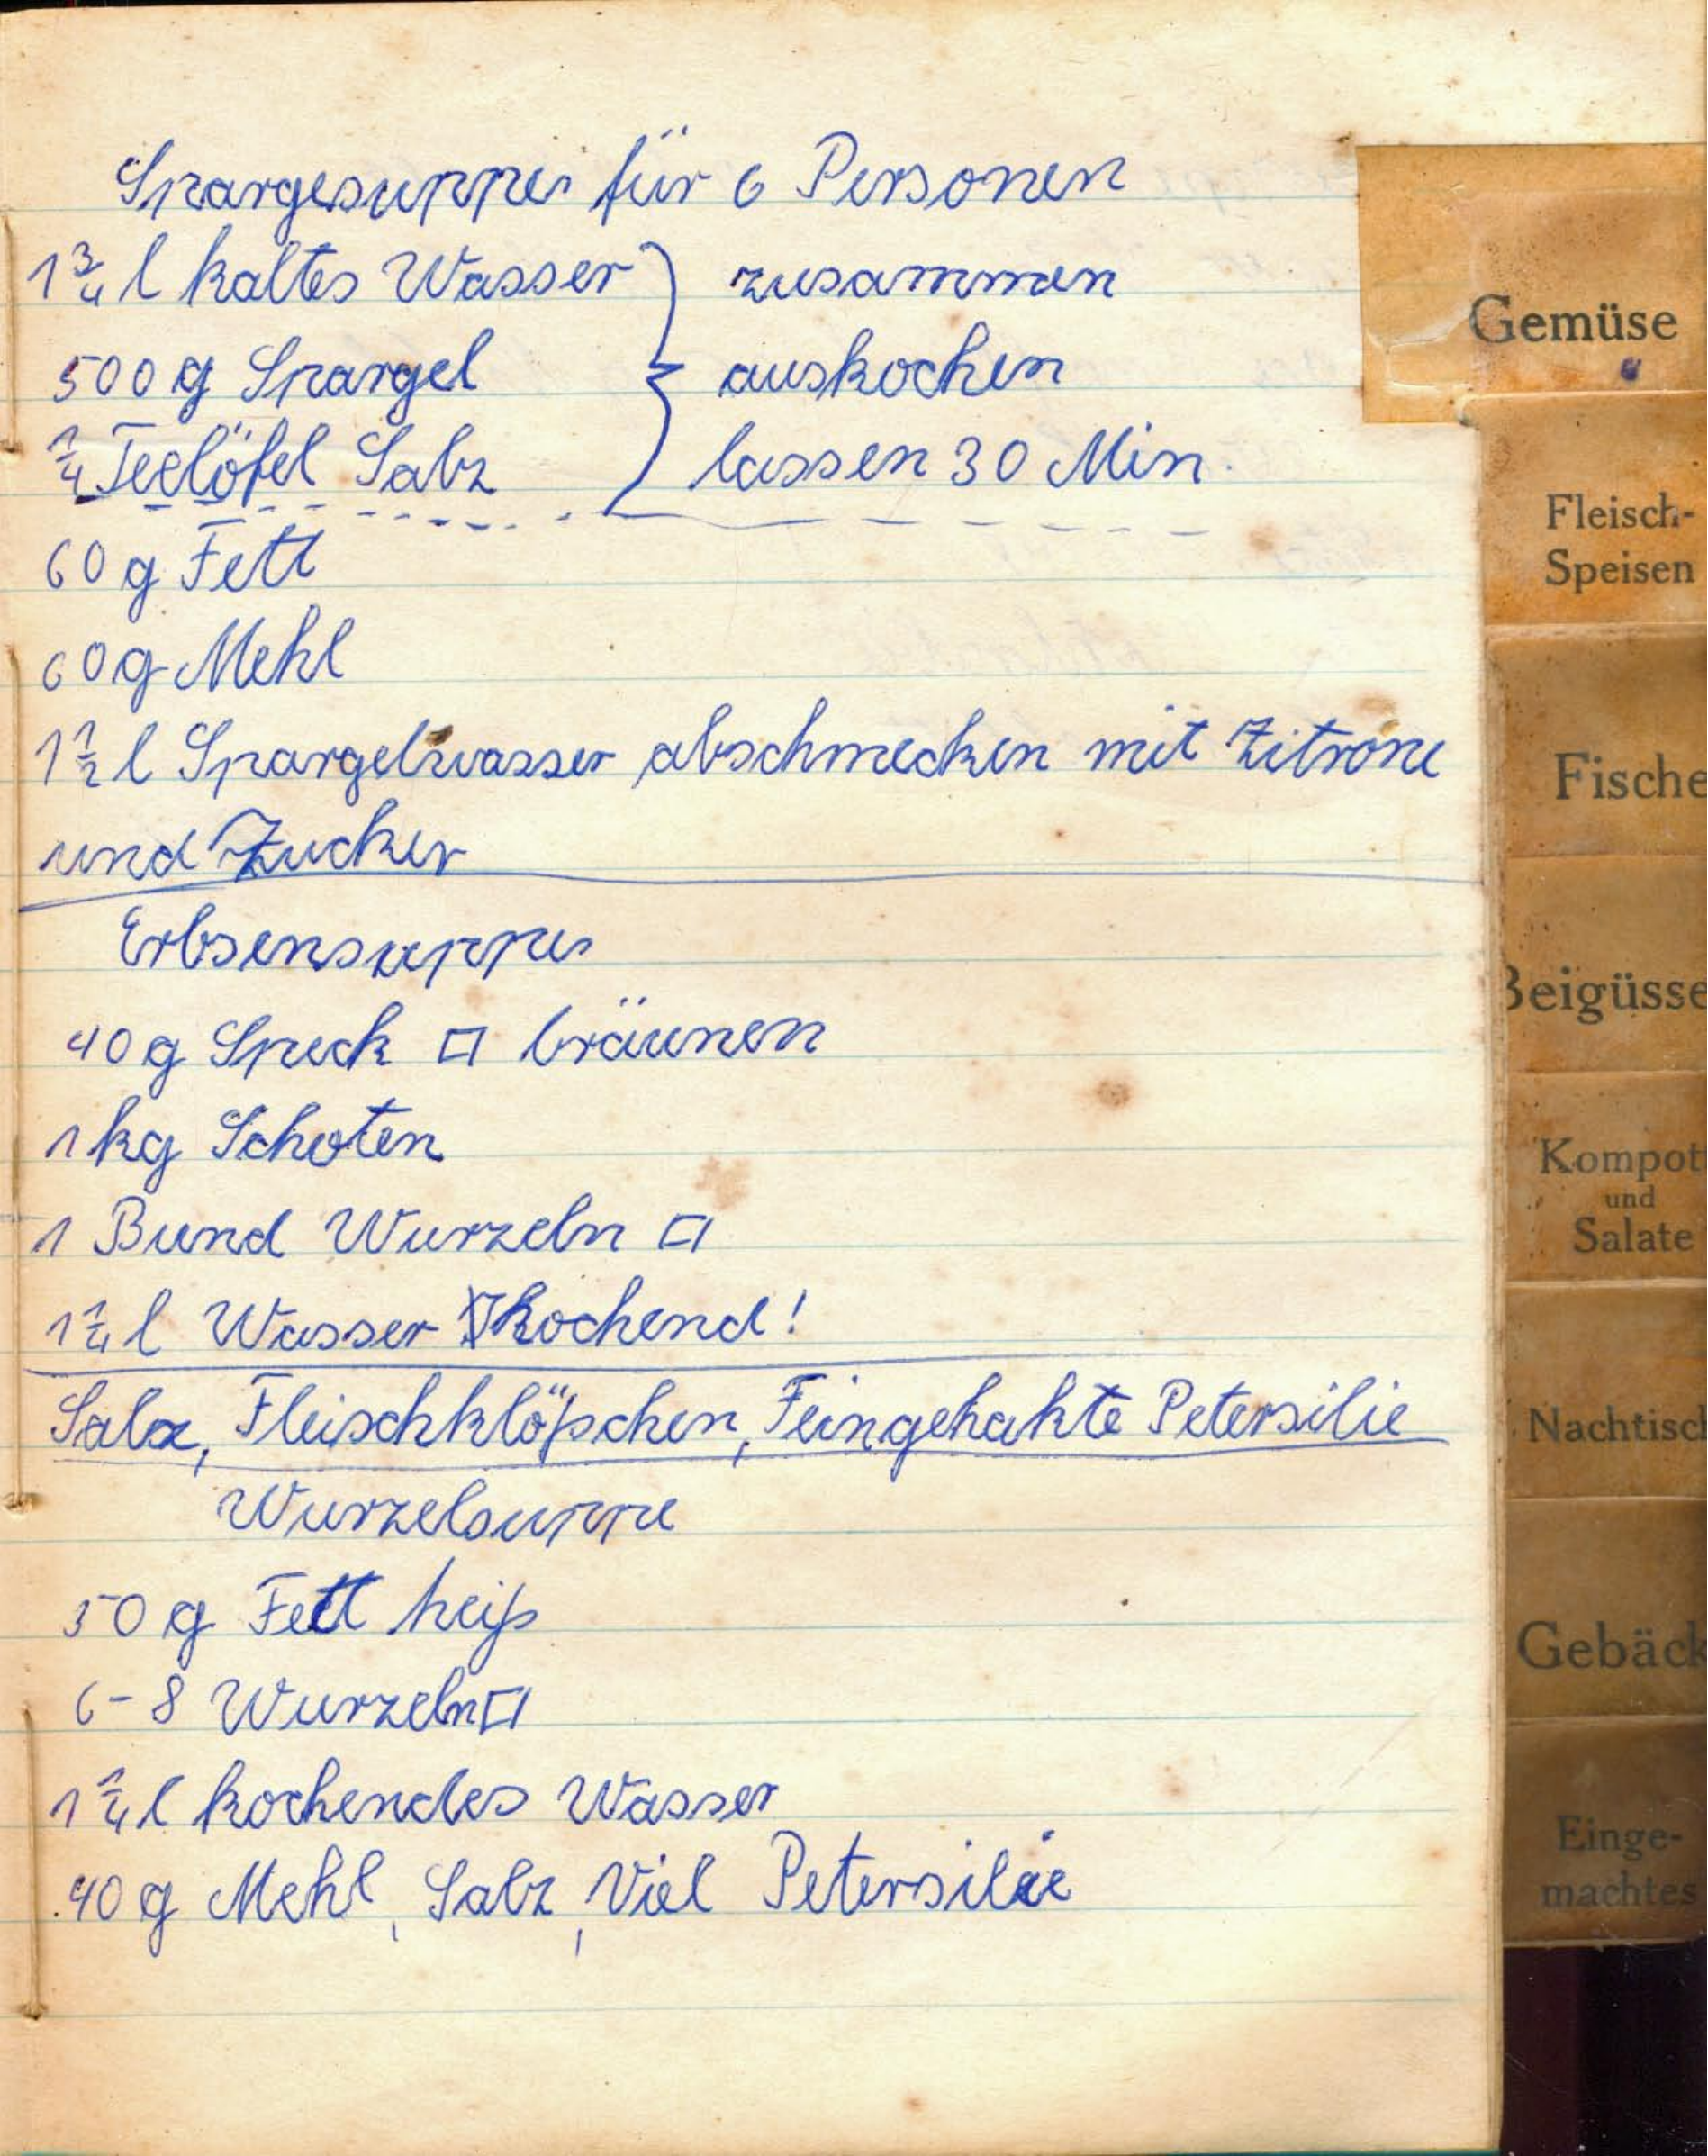 Spargesuppe für 6 Personen
1 3/4 l kaltes Wasser } zusammen
500 g Spargel } auskochen
1/4 Teelöfel Salz } lassen 30 Min.
60 g Fett
60 g Mehl
1 1/2 l Spargelwasser abschmecken mit Zitrone
und Zucker
Erbsensuppe
40 g Speck □ bräunen
1 kg Schoten
1 Bund Wurzeln □
1 1/4 l Wasser kochend!
Salz, Fleischklößchen, Feingehakte Petersilie
Wurzelsuppe
50 g Fett heiß
6-8 Wurzeln □
1 1/4 l kochendes Wasser
40 g Mehl, Salz, Viel Petersilie
Gemüse
Fleisch-
Speisen
Fische
Beigüsse
Kompott
und
Salate
Nachtisch
Gebäck
Einge-
machtes